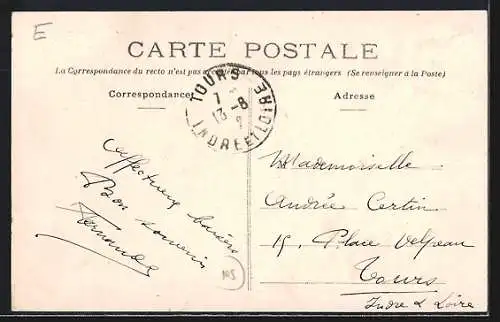 E
CARTE POSTALE
La Correspondance du recto n'est pas acceptée par tous les pays étrangers (Se renseigner à la Poste)
Correspondance
Adresse
TOURS
7 - 8
13
INDRE ET LOIRE
Affectueux baisers
Bon souvenir
Fernande
Mademoiselle
Andrée Certin
15, Place Velpeau
Tours
Indre & Loire